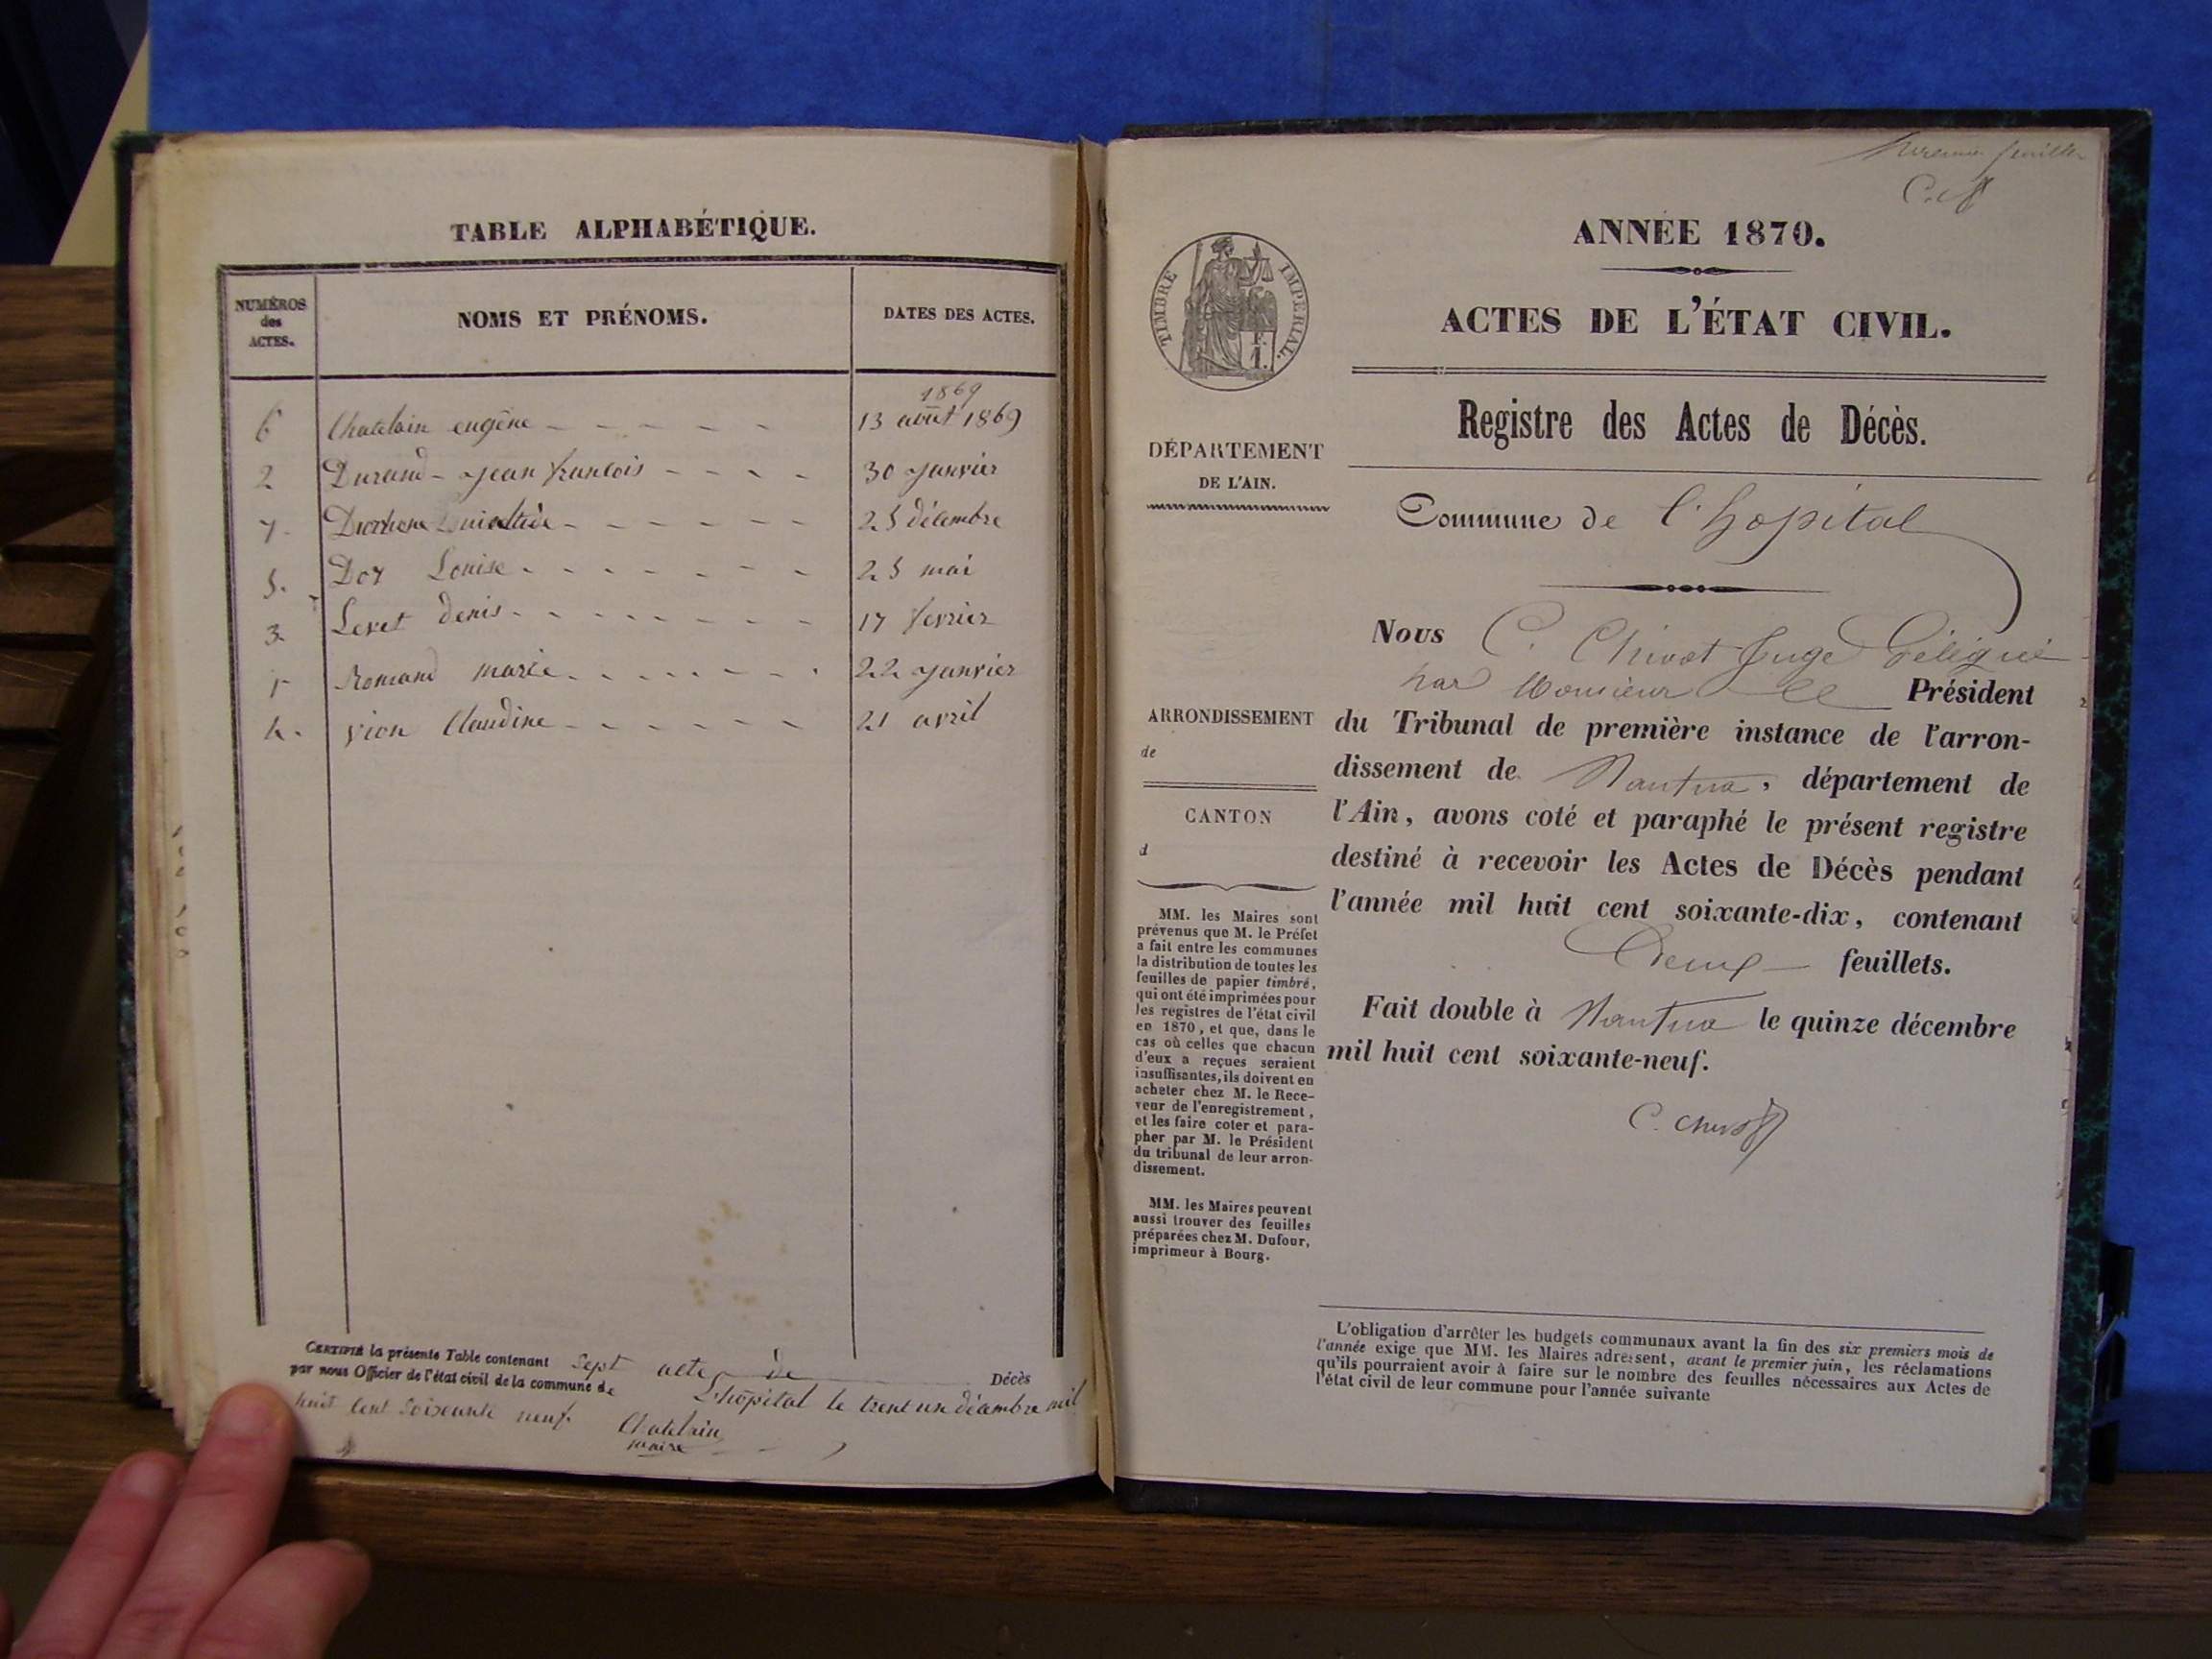 TABLE ALPHABÉTIQUE.
NUMÉROS
des
ACTES.
NOMS ET PRÉNOMS.
DATES DES ACTES.
1869
6 Chatelain eugène 13 août 1869
2 Durand jean françois 30 janvier
7. 25 décembre
5. Doy Louise 25 mai
3 Levet denis 17 fevrier
1 Romand marie 22 janvier
4. vion Claudine 21 avril
CERTIFIÉ la présente Table contenant sept acte de Décès
par nous Officier de l'état civil de la commune de L'hôpital le trent un décembre mil
huit cent soixante neuf.
Chatelain
maire
feuillet
ANNÉE 1870.
ACTES DE L'ÉTAT CIVIL.
TIMBRE IMPÉRIAL.
F.
1.
Registre des Actes de Décès.
DÉPARTEMENT
DE L'AIN.
Commune de l'hopital
Nous C. Chivot Juge Délégué
par Monsieur le Président
du Tribunal de première instance de l'arron-
dissement de Nantua, département de
l'Ain, avons coté et paraphé le présent registre
destiné à recevoir les Actes de Décès pendant
l'année mil huit cent soixante-dix, contenant
Deux feuillets.
Fait double à Nantua le quinze décembre
mil huit cent soixante-neuf.
C. Chivot
ARRONDISSEMENT
de
CANTON
d
MM. les Maires sont
prévenus que M. le Préfet
a fait entre les communes
la distribution de toutes les
feuilles de papier timbré,
qui ont été imprimées pour
les registres de l'état civil
en 1870, et que, dans le
cas où celles que chacun
d'eux a reçues seraient
insuffisantes, ils doivent en
acheter chez M. le Rece-
veur de l'enregistrement,
et les faire coter et para-
pher par M. le Président
du tribunal de leur arron-
dissement.
MM. les Maires peuvent
aussi trouver des feuilles
préparées chez M. Dufour,
imprimeur à Bourg.
L'obligation d'arrêter les budgets communaux avant la fin des six premiers mois de
l'année exige que MM. les Maires adressent, avant le premier juin, les réclamations
qu'ils pourraient avoir à faire sur le nombre des feuilles nécessaires aux Actes de
l'état civil de leur commune pour l'année suivante